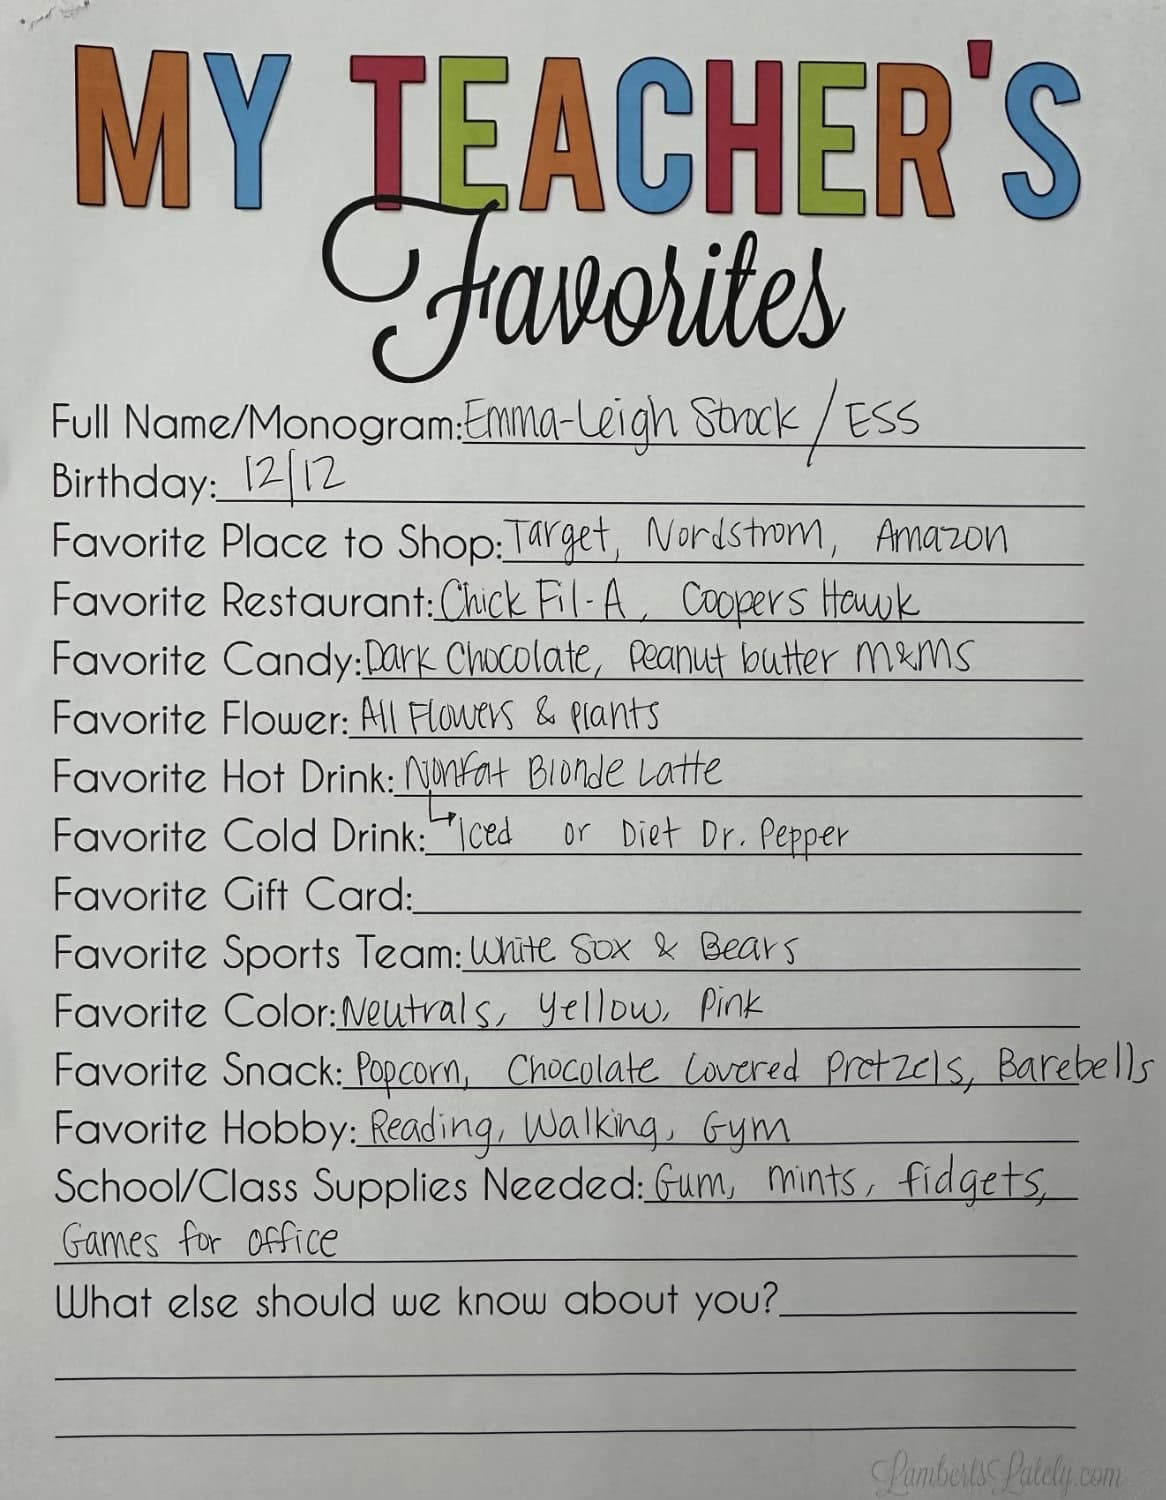 MY TEACHER'S
Favorites
Full Name/Monogram: Emma-Leigh Strock / ESS
Birthday: 12/12
Favorite Place to Shop: Target, Nordstrom, Amazon
Favorite Restaurant: Chick Fil-A, Coopers Hawk
Favorite Candy: Dark Chocolate, Peanut butter M&Ms
Favorite Flower: All Flowers & Plants
Favorite Hot Drink: Nonfat Blonde Latte
Favorite Cold Drink: ↳ Iced or Diet Dr. Pepper
Favorite Gift Card:
Favorite Sports Team: White Sox & Bears
Favorite Color: Neutrals, Yellow, Pink
Favorite Snack: Popcorn, Chocolate Covered Pretzels, Barebells
Favorite Hobby: Reading, Walking, Gym
School/Class Supplies Needed: Gum, mints, fidgets,
Games for office
What else should we know about you?
LambertsLately.com